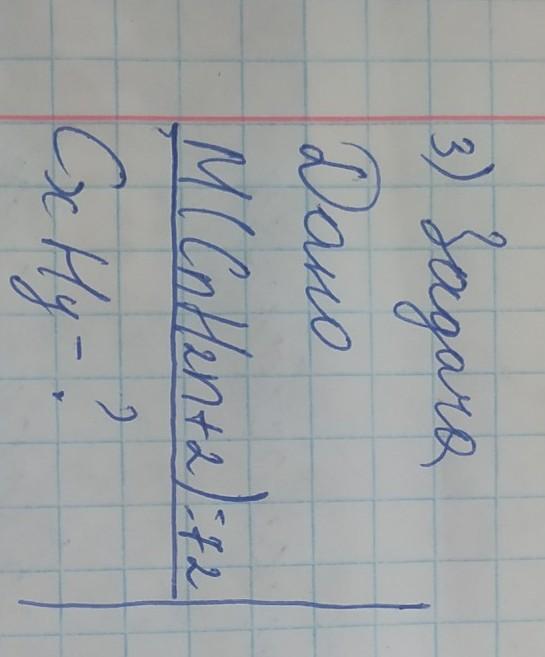 3) Задача
Дано
M(CnH2n+2)=72
CxHy-?